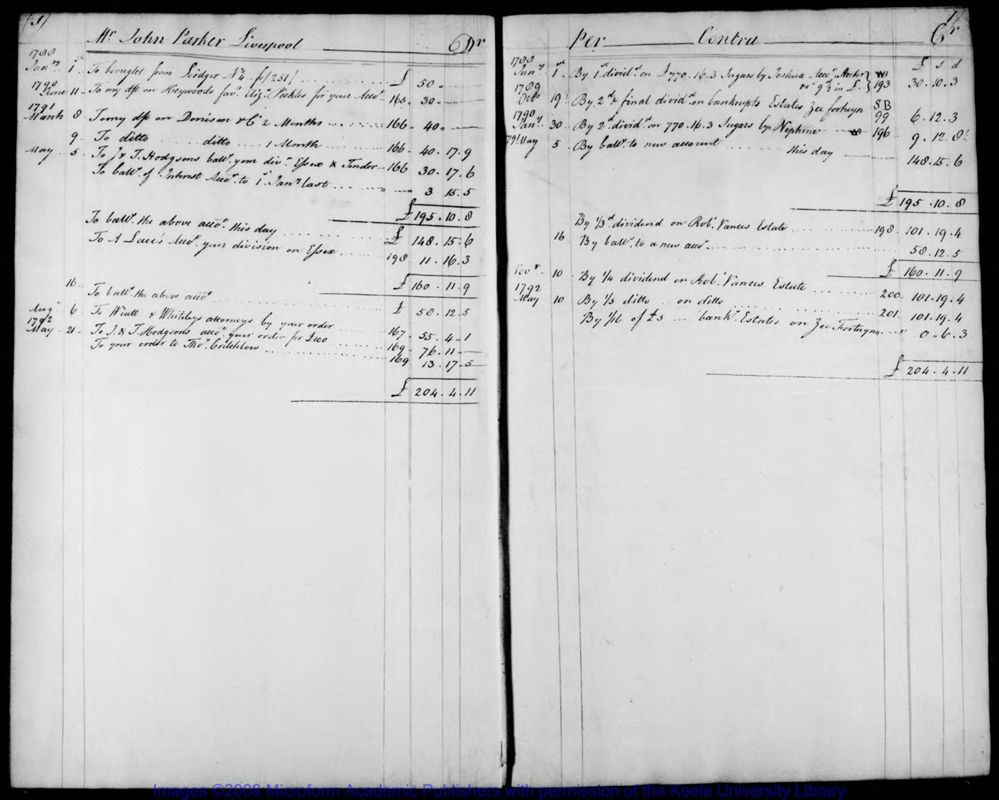 (1)
Mr. John Parker Liverpool Dr
1788
Jany 1st To brought from Ledger No 4. fo/251/ £ 50 " —
1790
June 11 To my dft on Heywoods favr Eliz. Pickles for your Acct. 163 30 — —
1791
March 8 To my dft on Denison & Co 2 Months 166 40 — —
9 To ditto ditto 1 Month 166 40 . 17 . 9
May 5 To J & T. Hodgsons ballce your divn. Essex & Tender 166 30 . 17 . 6
To ballce of Interest Acct. to 1st Jany last " — " 3 15 . 5
£ 195 . 10 . 8
To ballce the above acct. this day £ 148 . 15 . 6
To A Laces Acct. your division on Essex 198 11 . 16 . 3
£ 160 . 11 . 9
16 To ballce the above acct £ 58 . 12 . 5
Augt 6 To Wiatt & Whitleys attorneys by your order 167 . 55 . 4 . 1
1792
May 21 To J. & T. Hodgsons acct your order for £100 169 . 76 . 11 —
To your order to Thos. Critchlow 169 13 . 17 . 5
£ 204 . 4 . 11
1
Per Contra Cr
£ s d
1788
Jany 1st By 1st dividd. on £770 . 16 . 3 Sugars by Joshua Acct. 193 30 . 10 . 3
1789
Octr 19 By 2d & final dividd on bankrupts Estates SB 99 6 . 12 . 3
1790
Jany 30 By 2d. dividd. on 770 . 16 . 3 Sugars by Neptune 196 9 . 12 . 8
1791 May 5 By ballce. to new account this day 148 . 15 . 6
£ 195 . 10 . 8
By 1/3d dividend on Robt Vances Estate 198 101 . 19 . 4
16 By ballce. to a new acct. 58 . 12 . 5
£ 160 . 11 . 9
Novr 10 By 1/4 dividend on Robt Vances Estate 200 101 . 19 . 4
1792
May 10 By 1/3 ditto on ditto 201 101 . 19 . 4
By 1/16 of £5 — bankt. Estates on 0 . 6 . 3
£ 204 . 4 . 11
Images ©2008 Microform Academic Publishers with permission of the Keele University Library